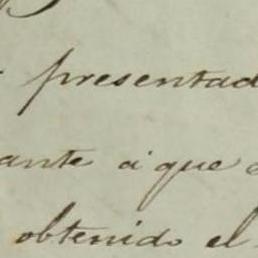 presentad
ante á que
obtenido el